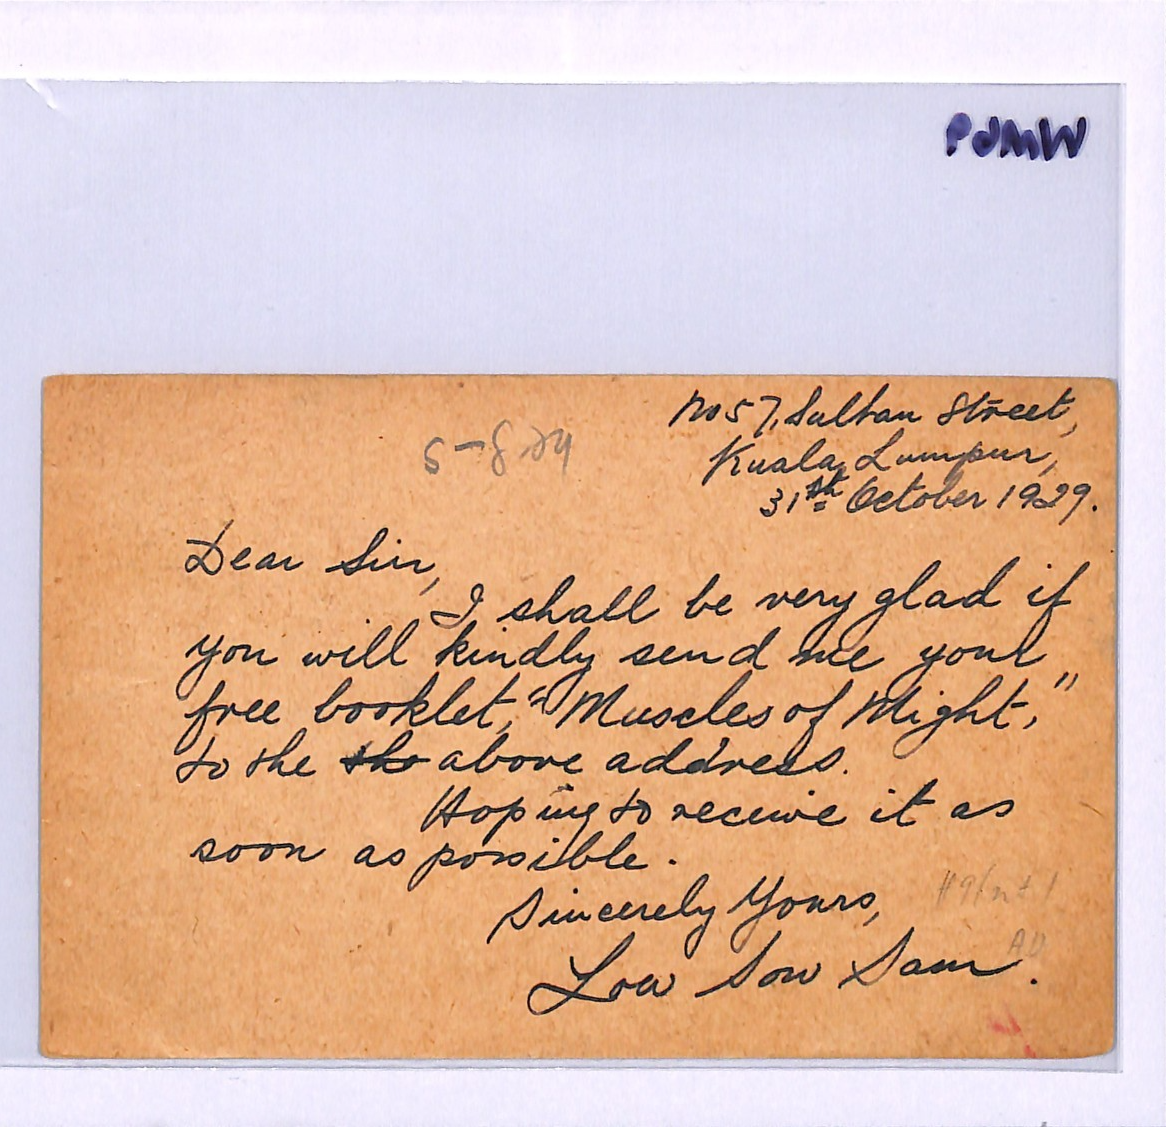 PdMW
No 57, Sultan Street,
Kuala Lumpur,
31st October 1929.
Dear Sir,
I shall be very glad if
you will kindly send me your
free booklet, "Muscles of Might,"
to the the above address.
Hoping to receive it as
soon as possible.
Sincerely Yours,
Low Sow Sam.